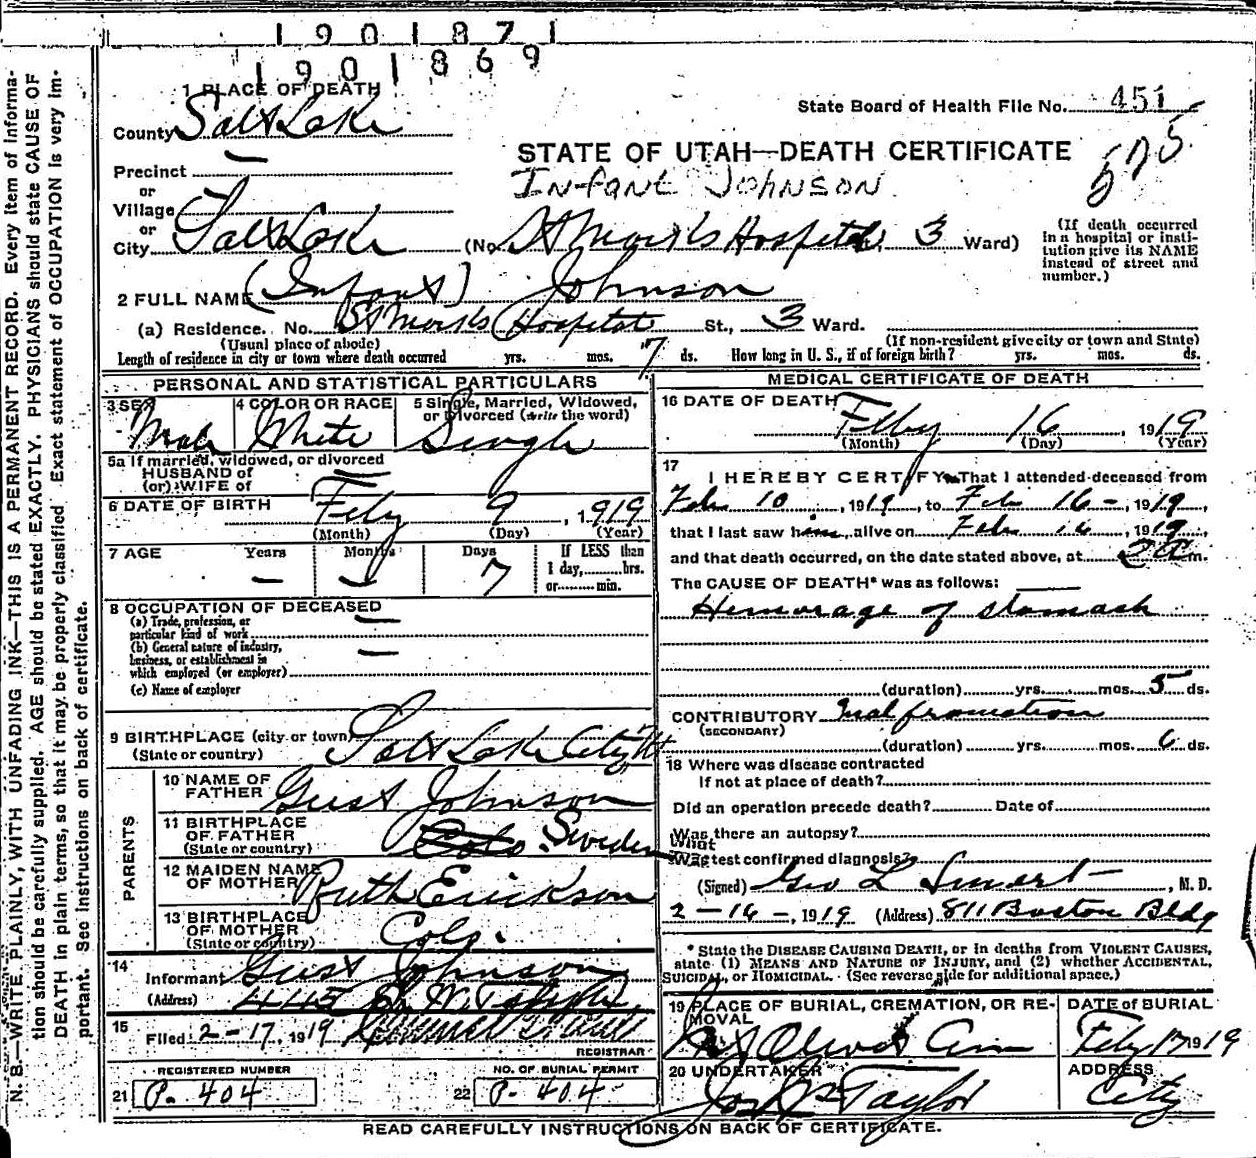 1901871
1901869
1 PLACE OF DEATH
State Board of Health File No. 451
County Salt Lake
575
STATE OF UTAH—DEATH CERTIFICATE
Precinct —
INFANT JOHNSON
or
Village
or
City Salt Lake (No. St Marks Hospital 3 Ward)
(If death occurred in a hospital or insti-
tution give its NAME
instead of street and
number.)
2 FULL NAME (Infant) Johnson
(a) Residence. No. St Marks Hospital St., 3 Ward.
(Usual place of abode) (If non-resident give city or town and State)
Length of residence in city or town where death occurred yrs. mos. 7 ds. How long in U. S., if of foreign birth? yrs. mos. ds.
PERSONAL AND STATISTICAL PARTICULARS
3 SEX 4 COLOR OR RACE 5 Single, Married, Widowed,
or Divorced (write the word)
Male White Single
5a If married, widowed, or divorced
HUSBAND of
(or) WIFE of —
6 DATE OF BIRTH Feby 9, 1919
(Month) (Day) (Year)
7 AGE Years Months Days If LESS than
1 day,........hrs.
— — 7 or........min.
8 OCCUPATION OF DECEASED
(a) Trade, profession, or
particular kind of work —
(b) General nature of industry,
business, or establishment in
which employed (or employer) —
(c) Name of employer
9 BIRTHPLACE (city or town) Salt Lake City Ut
(State or country)
PARENTS
10 NAME OF
FATHER Gust Johnson
11 BIRTHPLACE
OF FATHER Colo. Sweden
(State or country)
12 MAIDEN NAME
OF MOTHER Ruth Erickson
13 BIRTHPLACE
OF MOTHER Colo.
(State or country)
14
Informant Gust Johnson
(Address) 445 So. W. Temple
15
Filed 2-17, 1919
REGISTRAR
REGISTERED NUMBER NO. OF BURIAL PERMIT
21 P. 404 22 P. 404
MEDICAL CERTIFICATE OF DEATH
16 DATE OF DEATH
Feby 16 1919
(Month) (Day) (Year)
17
I HEREBY CERTIFY, That I attended deceased from
Feb 10, 1919, to Feb 16-, 1919,
that I last saw him alive on Feb 16, 1919,
and that death occurred, on the date stated above, at 2 A m.
The CAUSE OF DEATH* was as follows:
Hemorage of stomach
(duration) yrs. mos. 5 ds.
CONTRIBUTORY Malfromation
(SECONDARY)
(duration) yrs. mos. 6 ds.
18 Where was disease contracted
If not at place of death?
Did an operation precede death? Date of
Was there an autopsy?
What
Was test confirmed diagnosis?
(Signed) Geo L Smart, M. D.
2-16-, 1919 (Address) 811 Boston Bldg
* State the DISEASE CAUSING DEATH, or in deaths from VIOLENT CAUSES,
state (1) MEANS AND NATURE OF INJURY, and (2) whether ACCIDENTAL,
SUICIDAL, or HOMICIDAL. (See reverse side for additional space.)
19 PLACE OF BURIAL, CREMATION, OR RE-
MOVAL DATE of BURIAL
Mt Olivet Cem Feby 17 1919
20 UNDERTAKER ADDRESS
Taylor City
READ CAREFULLY INSTRUCTIONS ON BACK OF CERTIFICATE.
N. B.—WRITE PLAINLY, WITH UNFADING INK—THIS IS A PERMANENT RECORD. Every item of informa-
tion should be carefully supplied. AGE should be stated EXACTLY. PHYSICIANS should state CAUSE OF
DEATH in plain terms, so that it may be properly classified. Exact statement of OCCUPATION is very im-
portant. See instructions on back of certificate.